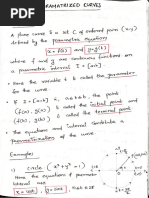 PARAMATRIZED CURVES
A plane curve is a set C of ordered pair (x,y)
defined by the parametric equations
x = f(t) and y = g(t)
where f and g are continuous functions on
a parametric interval I = [a,b]
• Here the variable t is called the parameter
for the curve
• If I = [a,b], a≤t≤b, the point
(f(a), g(a)) is called the initial point and
(f(b), g(b)) is called the terminal point
• The equations and interval constitute a
parametrization of the curve.
Examples
circle (x²+y²=1)
The equations and parameter
interval are
x = cost, y = sint